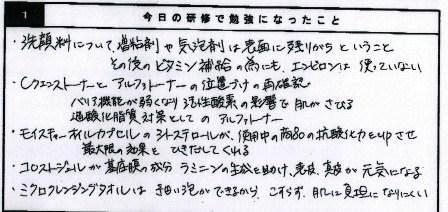 1 今日の研修で勉強になったこと
・洗顔料について、増粘剤や気泡剤は表面に残りがちということ
その後のビタミン補給の為にも、エンビロンは使っていない
・Cクエンストーナーとアルファトーナーの位置づけの再確認
バリア機能が弱くなり活性酸素の影響で肌がさびる
過酸化脂質対策としてのアルファトナー
・モイスチャーオイルカプセルのシトステロールが、使用中の商品の抗酸化力をupさせ
最大限の効果をひきだしてくれる
・コロストジェルが基底膜の成分ラミニンの生成を助け、表皮、真皮が元気になる
・ミクロクレンジングタオルはきめ細い泡ができるから、こすらず、肌に負担になりにくい